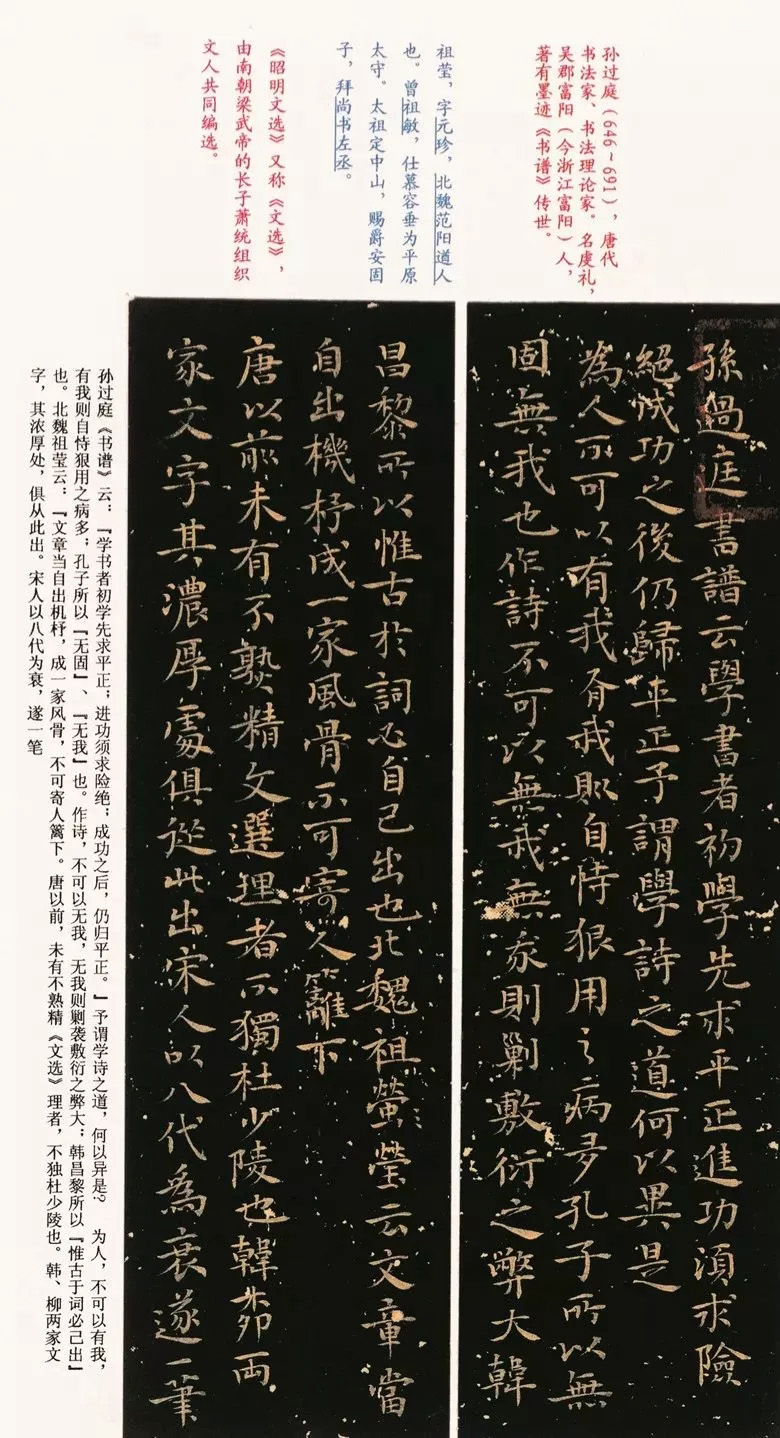 孙过庭（646～691），唐代
书法家、书法理论家。名虔礼，
吴郡富阳（今浙江富阳）人，
著有墨迹《书谱》传世。
祖莹，字元珍，北魏范阳道人
也。曾祖敏，仕慕容垂为平原
太守。太祖定中山，赐爵安固
子，拜尚书左丞。
《昭明文选》又称《文选》，
由南朝梁武帝的长子萧统组织
文人共同编选。
孫過庭書譜云學書者初學先求平正進功須求險
絕成功之後仍歸平正予謂學詩之道何以異是
為人不可以有我有我則自恃狠用之病多孔子所以無
固無我也作詩不可以無我無我則剿敷衍之弊大韓
昌黎所以惟古於詞必自己出也北魏祖螢瑩云文章當
自出機杼成一家風骨不可寄人籬下
唐以前未有不熟精文選理者不獨杜少陵也韓茆两
家文字其濃厚處俱從此出宋人以八代為衰遂一筆
孙过庭《书谱》云：『学书者初学先求平正；进功须求险绝；成功之后，仍归平正。』予谓学诗之道，何以异是？ 为人，不可以有我，
有我则自恃狠用之病多；孔子所以『无固』、『无我』也。作诗，不可以无我，无我则剿袭敷衍之弊大；韩昌黎所以『惟古于词必己出』
也。北魏祖莹云：『文章当自出机杼，成一家风骨，不可寄人篱下。唐以前，未有不熟精《文选》理者，不独杜少陵也。韩、柳两家文
字，其浓厚处，俱从此出。宋人以八代为衰，遂一笔